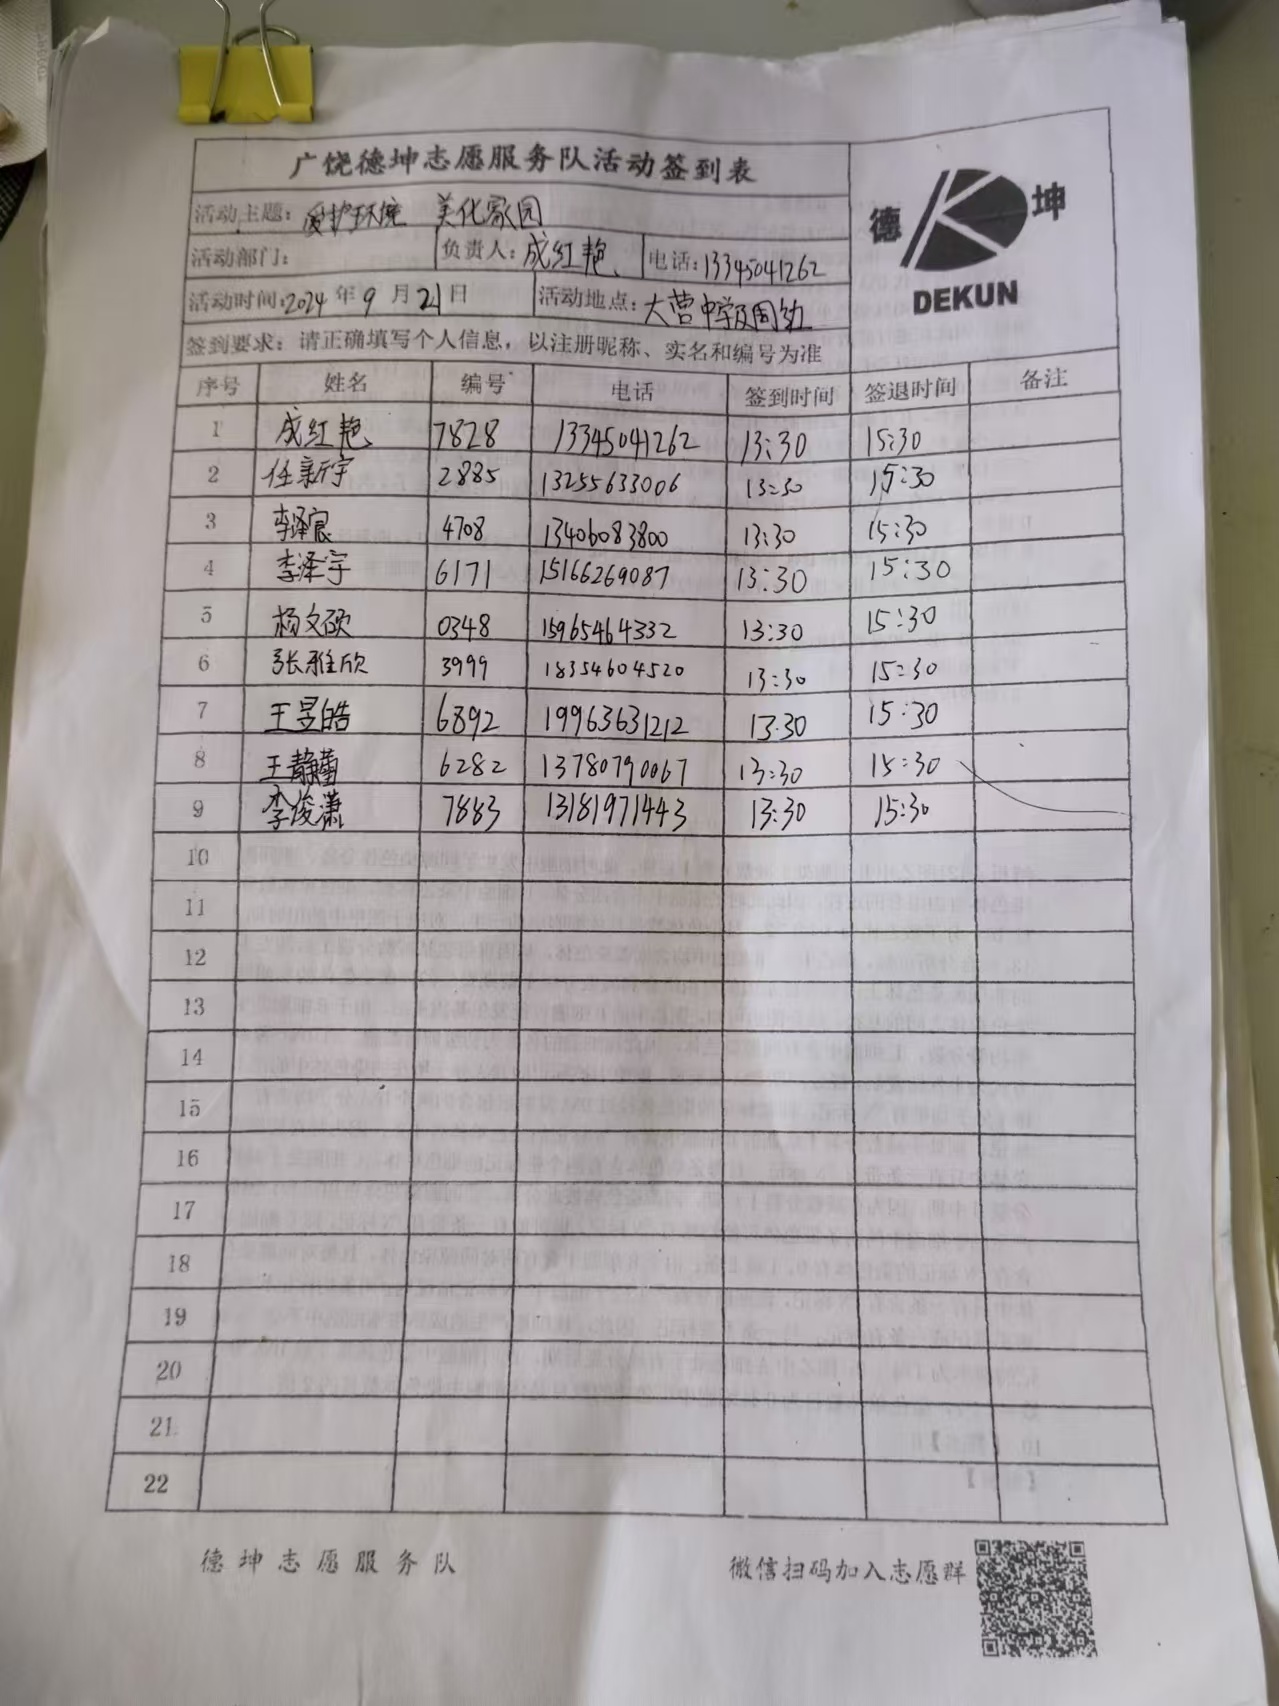 广饶德坤志愿服务队活动签到表
德 坤
DEKUN
活动主题: 爱护环境 美化家园
活动部门: 负责人: 成红艳 电话: 13345041262
活动时间: 2024 年 9 月 21 日 活动地点: 大营中学及周边
签到要求: 请正确填写个人信息，以注册昵称、实名和编号为准
序号 姓名 编号 电话 签到时间 签退时间 备注
1 成红艳 7828 13345041262 13:30 15:30
2 任新宇 2885 13255633006 13:30 15:30
3 李泽宸 4708 13406083800 13:30 15:30
4 李泽宇 6171 15166269087 13:30 15:30
5 杨文硕 0348 15965464332 13:30 15:30
6 张雅欣 3999 18354604520 13:30 15:30
7 王昱皓 6892 19963631212 13:30 15:30
8 王静 6282 13780790067 13:30 15:30
9 李俊潇 7883 13181971443 13:30 15:30
10
11
12
13
14
15
16
17
18
19
20
21
22
德坤志愿服务队 微信扫码加入志愿群